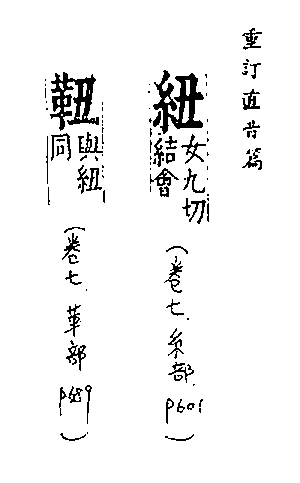 重訂直音篇
紐女九切
結會
（卷七．糸部．p601）
靵與紐
同
（卷七．革部 p689）